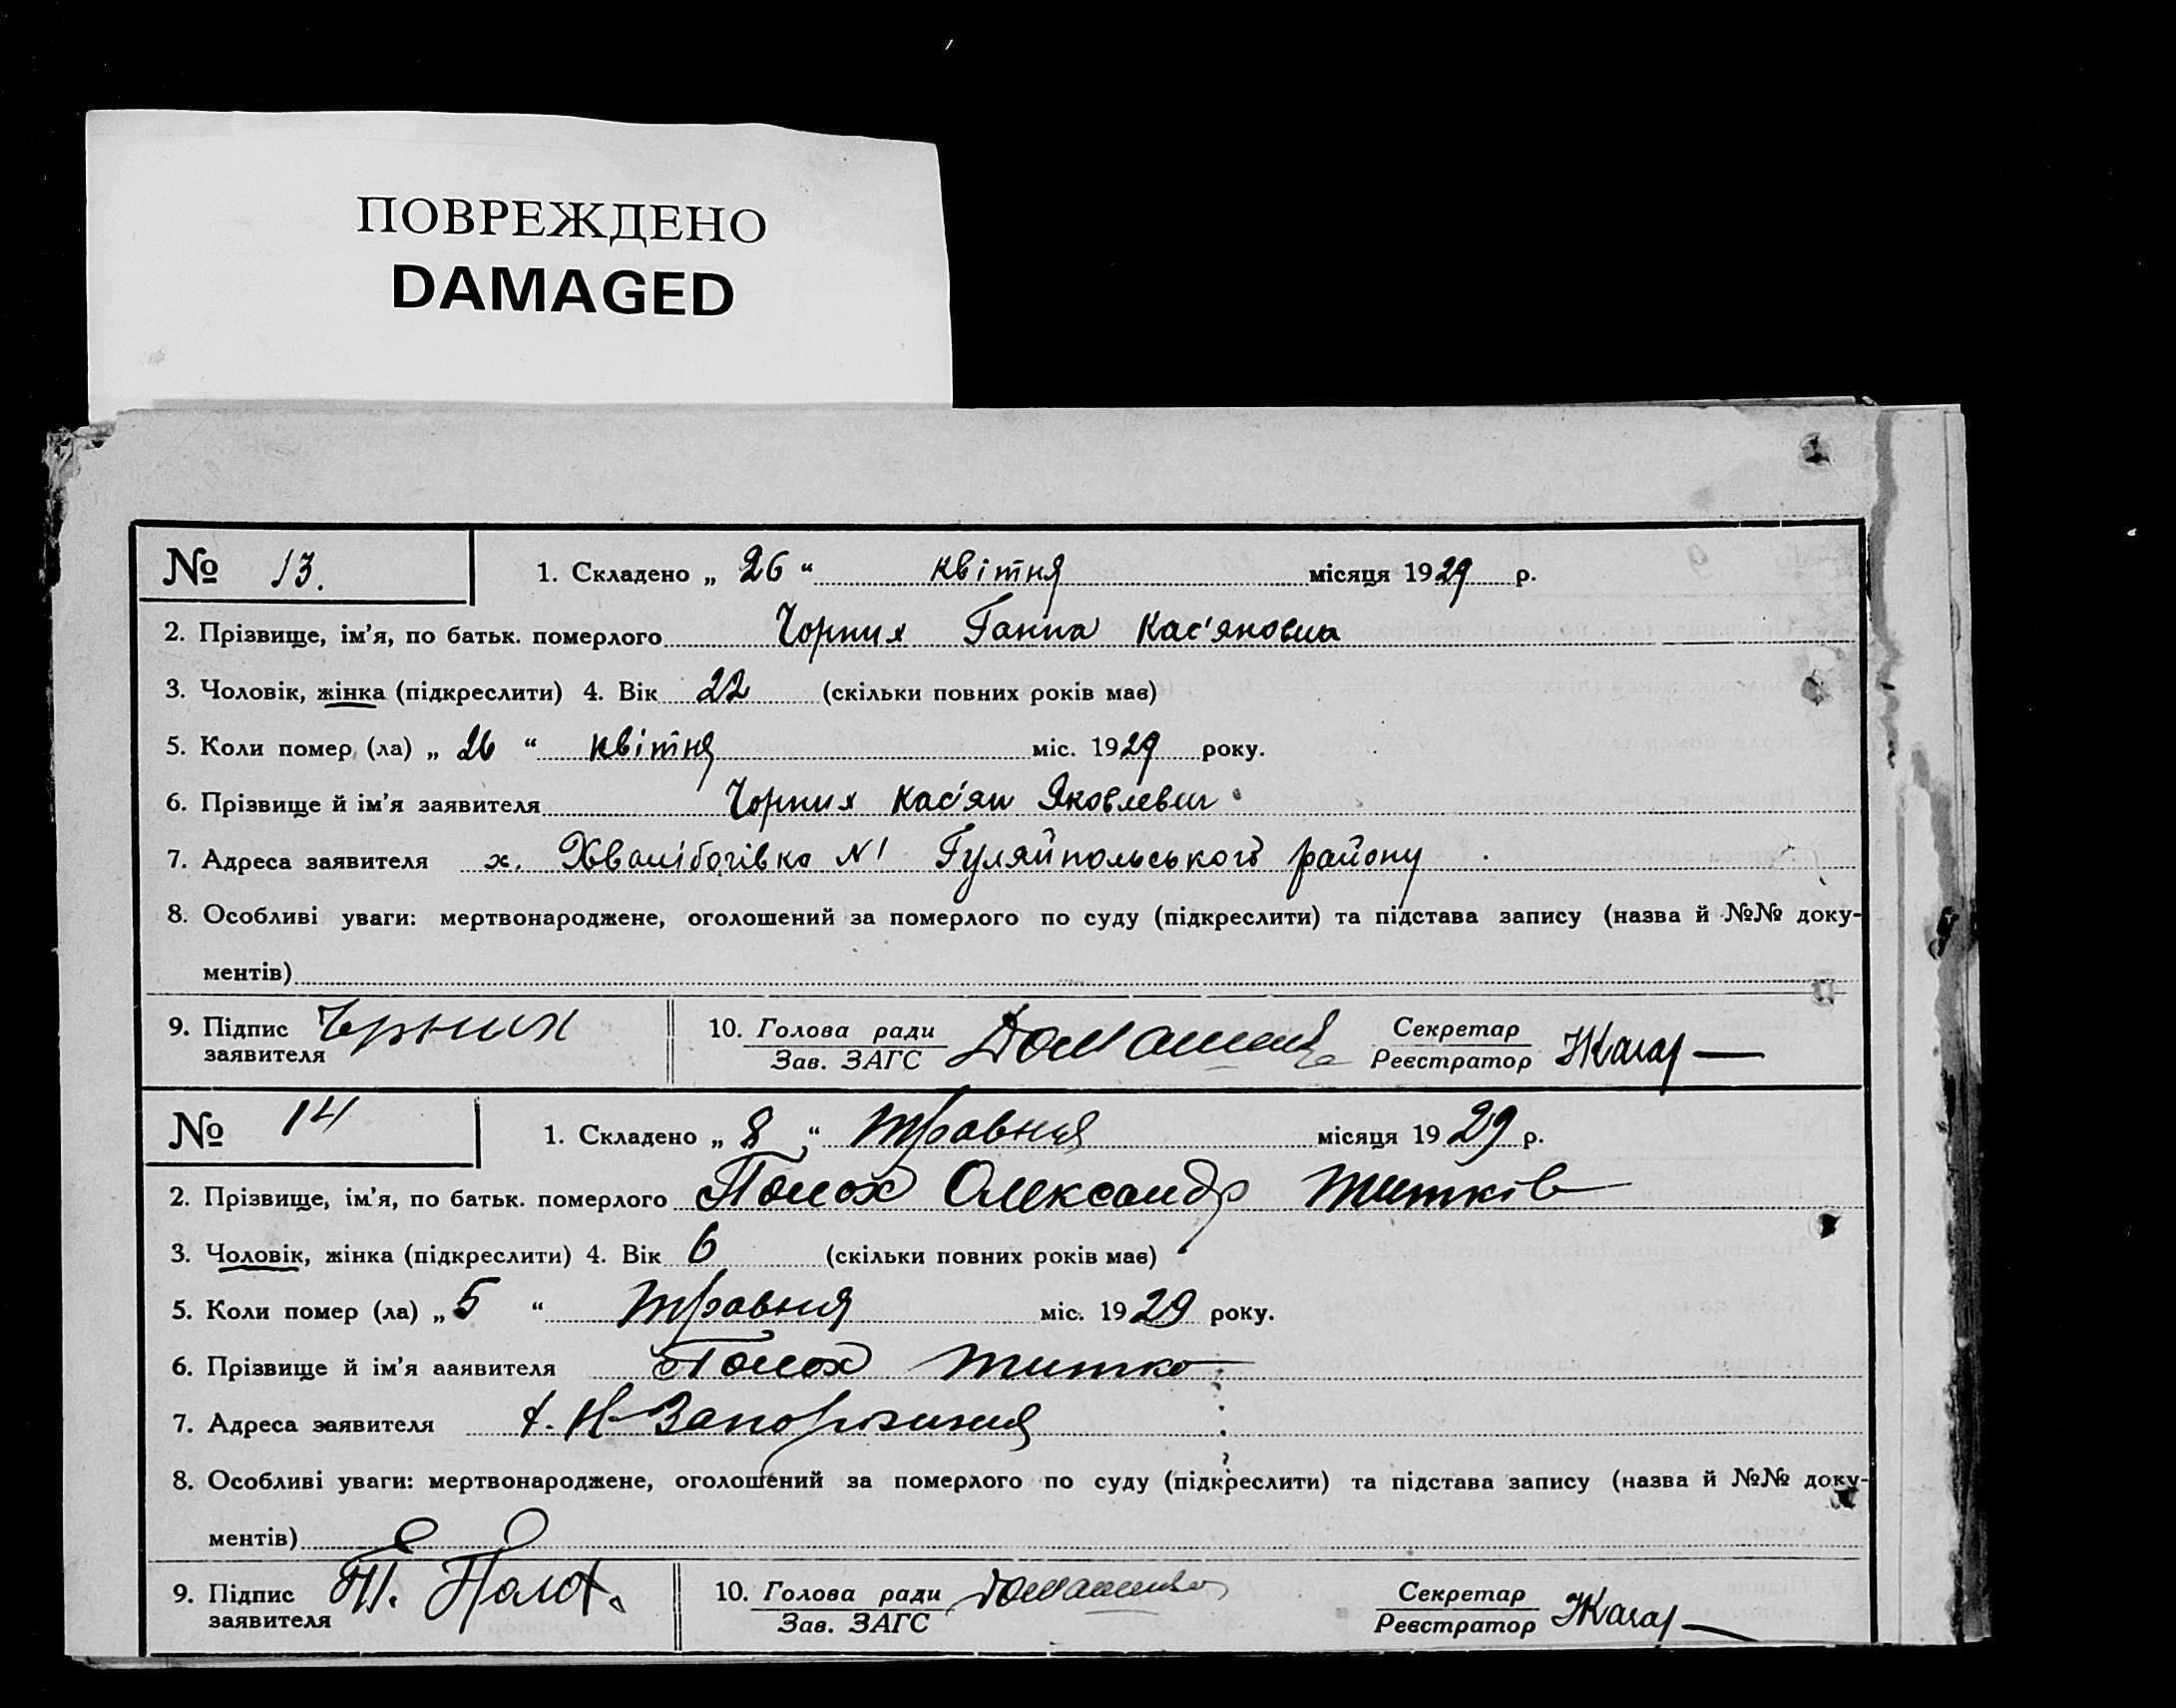 ПОВРЕЖДЕНО
DAMAGED
№ 13.
1. Складено „ 26 “ квітня місяця 1929 р.
2. Прізвище, ім’я, по батьк. померлого Чорних Ганна Кас'яновна
3. Чоловік, жінка (підкреслити) 4. Вік 22 (скільки повних років має)
5. Коли помер (ла) „ 26 “ квітня міс. 1929 року.
6. Прізвище й ім’я заявителя Чорних Кас'ян Яковлевич
7. Адреса заявителя х. Хвалібогівка №1 Гуляйпольського району
8. Особливі уваги: мертвонароджене, оголошений за померлого по суду (підкреслити) та підстава запису (назва й №№ доку-
ментів)
9. Підпис заявителя Чорних
10. Голова ради
Зав. ЗАГС
Секретар
Реєстратор
№ 14
1. Складено „ 8 “ травня місяця 1929 р.
2. Прізвище, ім’я, по батьк. померлого Полох Олександр Титків
3. Чоловік, жінка (підкреслити) 4. Вік 6 (скільки повних років має)
5. Коли помер (ла) „ 5 “ травня міс. 1929 року.
6. Прізвище й ім’я ааявителя Полох Титко
7. Адреса заявителя Н-Запоріжжя
8. Особливі уваги: мертвонароджене, оголошений за померлого по суду (підкреслити) та підстава запису (назва й №№ доку-
ментів)
9. Підпис заявителя Т. Полох.
10. Голова ради
Зав. ЗАГС
Секретар
Реєстратор